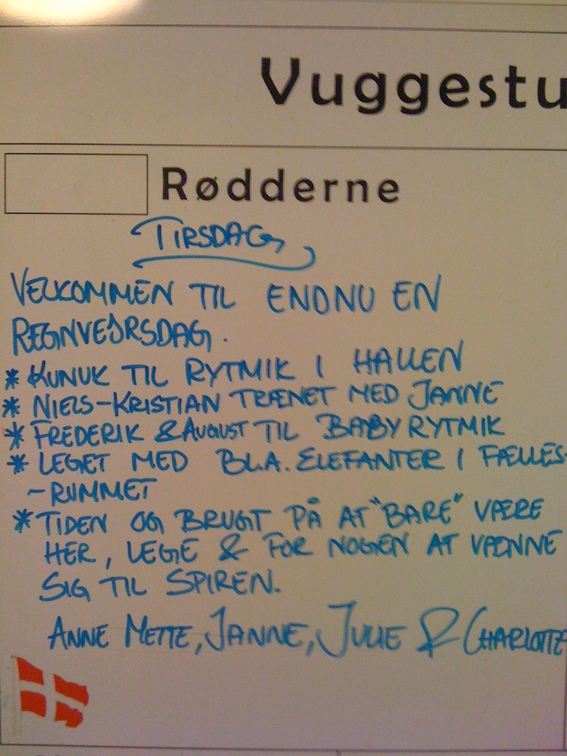 Vuggestu
Rødderne
TIRSDAG
VELKOMMEN TIL ENDNU EN
REGNVEJRSDAG.
* KUNUK TIL RYTMIK I HALLEN
* NIELS-KRISTIAN TRÆNET MED JANNE
* FREDERIK & AUGUST TIL BABYRYTMIK
* LEGET MED BL.A. ELEFANTER I FÆLLES-
-RUMMET
* TIDEN OG BRUGT PÅ AT "BARE" VÆRE
HER, LEGE & FOR NOGEN AT VÆNNE
SIG TIL SPIREN.
ANNE METTE, JANNE, JULIE & CHARLOTTE